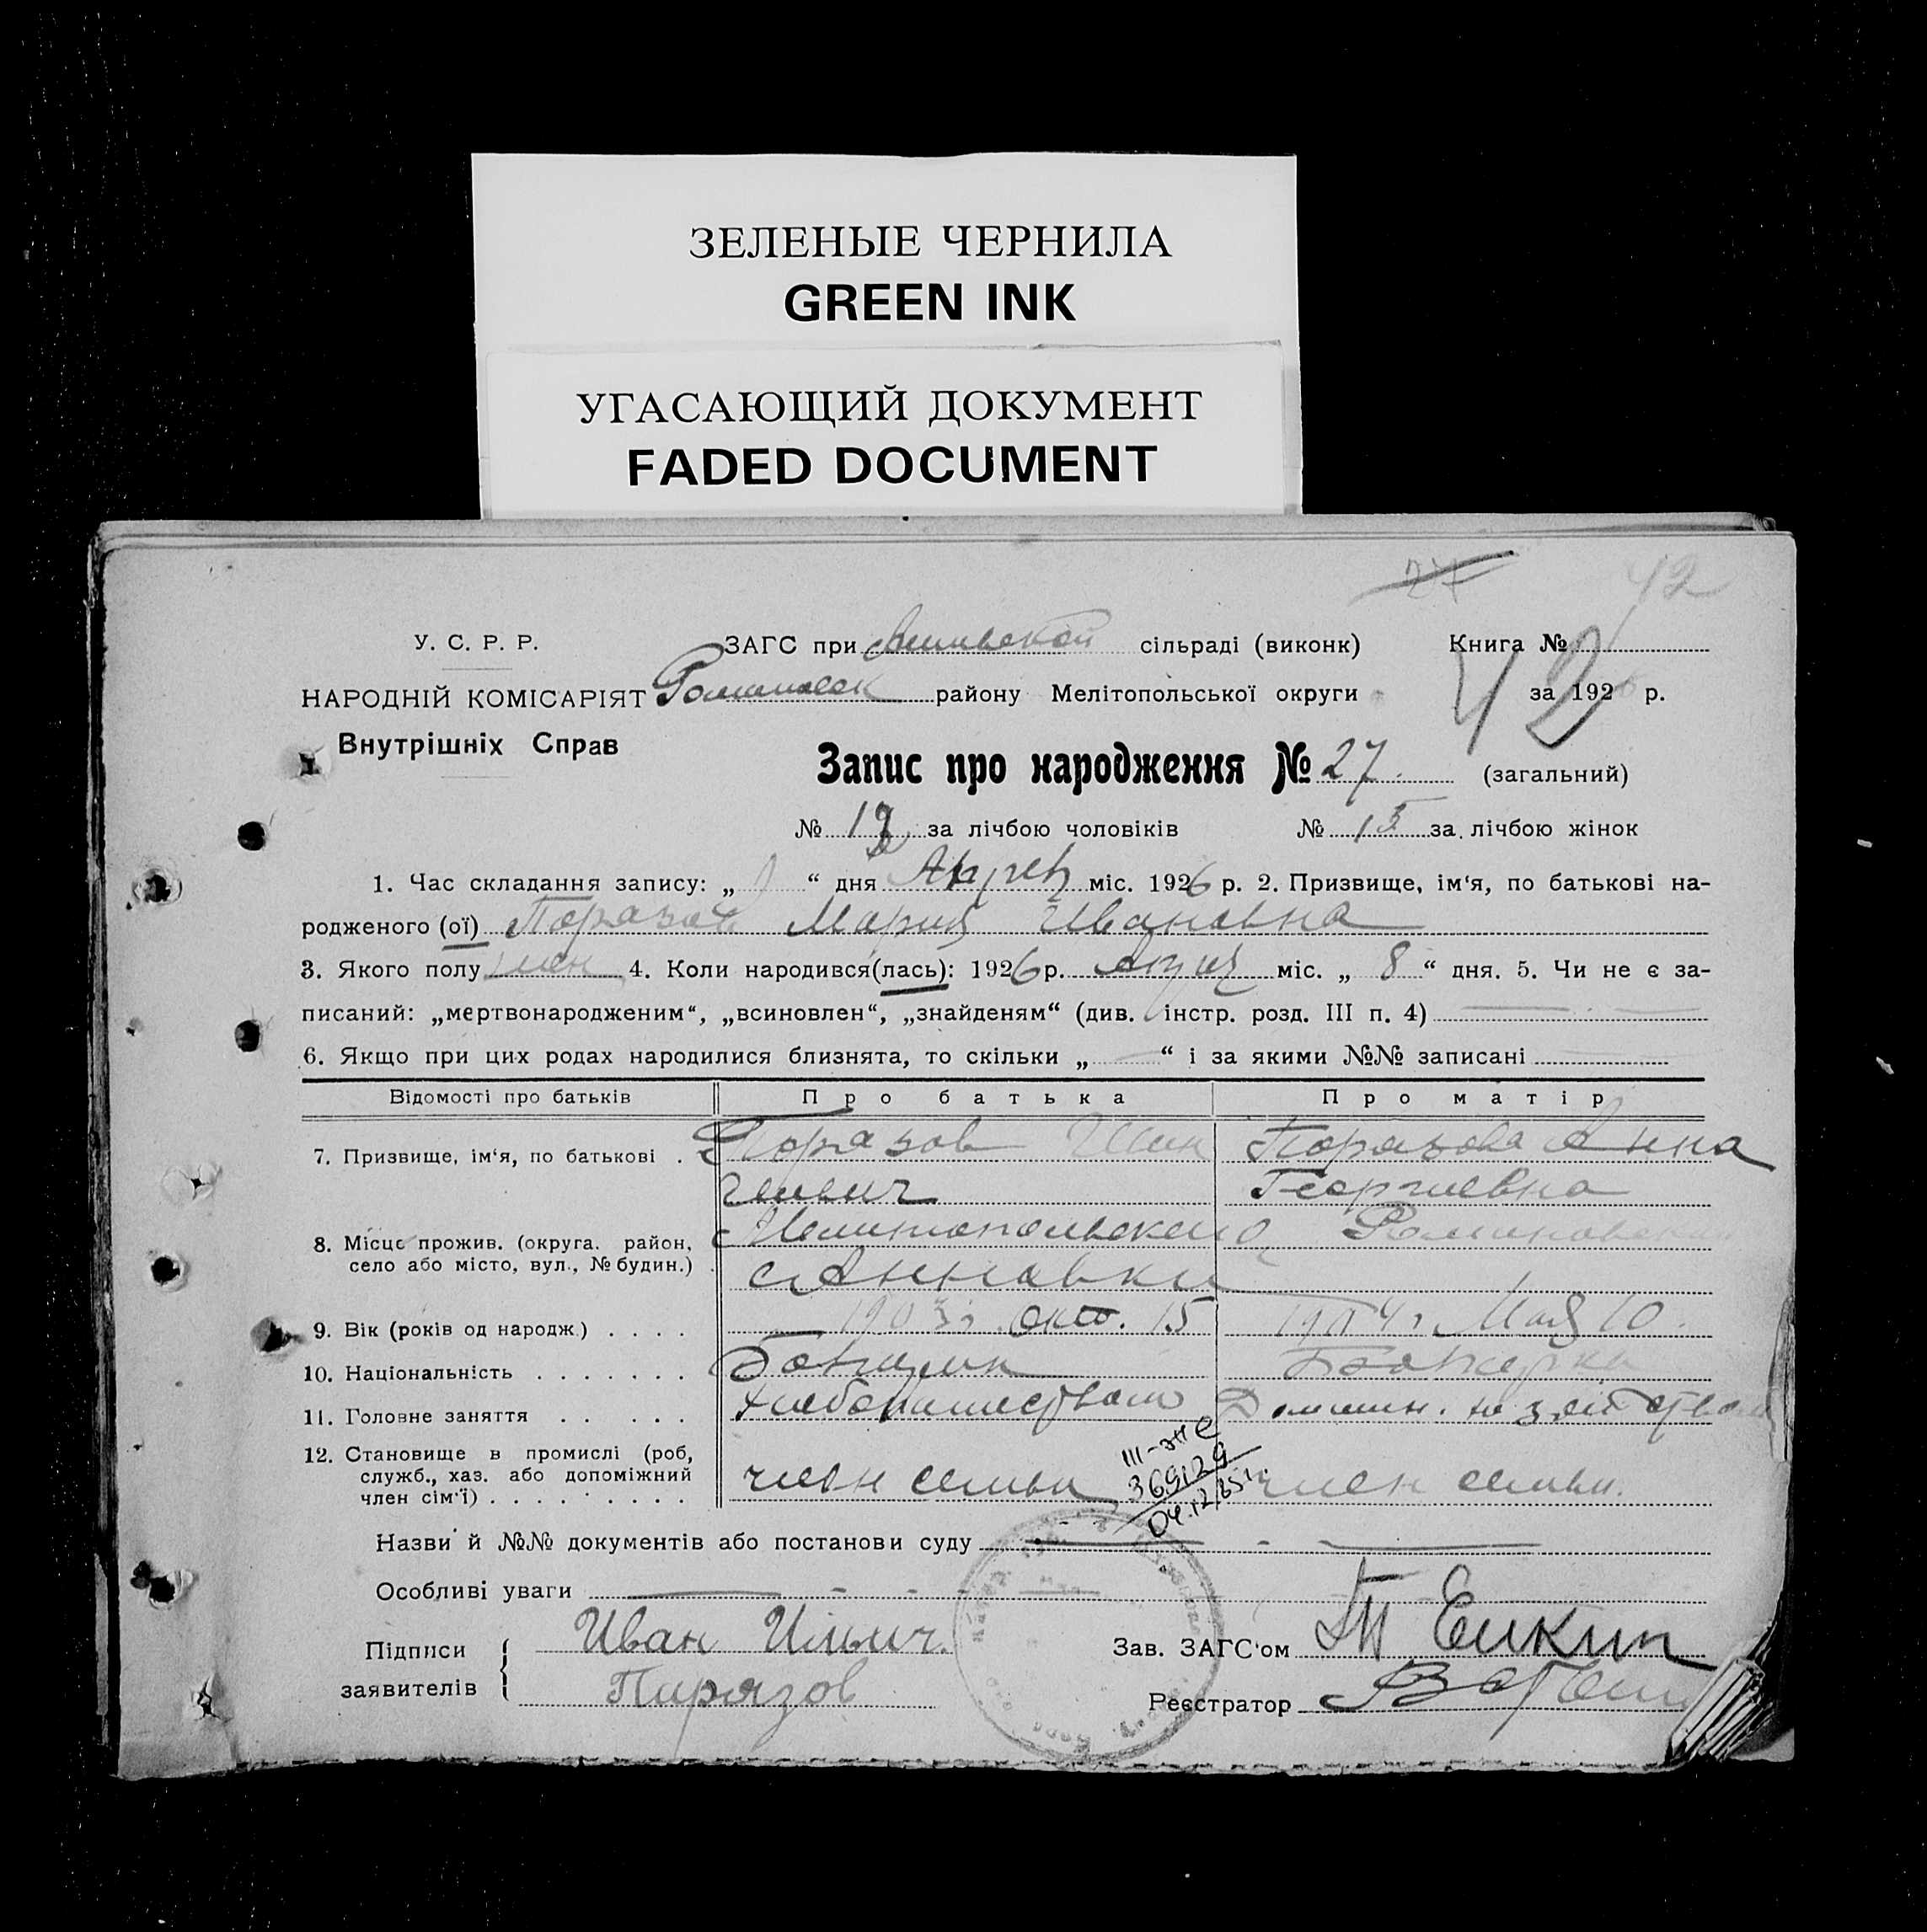 ЗЕЛЕНЫЕ ЧЕРНИЛА
GREEN INK
УГАСАЮЩИЙ ДОКУМЕНТ
FADED DOCUMENT
27 42
У. С. Р. Р. ЗАГС при сільраді (виконк) Книга №
НАРОДНІЙ КОМІСАРІЯТ району Мелітопольської округи 42 за 1926 р.
Внутрішніх Справ
Запис про народження № 27. (загальний)
№ 12 за лічбою чоловіків № 15 за лічбою жінок
1. Час складання запису: „ “ дня міс. 1926 р. 2. Призвище, ім‘я, по батькові на-
родженого (ої) Мария Ивановна
3. Якого полу жен 4. Коли народився(лась): 1926 р. міс. „ 8 “ дня. 5. Чи не є за-
писаний: „мертвонародженим“, „всиновлен“, „знайденям“ (див. інстр. розд. III п. 4)
6. Якщо при цих родах народилися близнята, то скільки „ “ і за якими №№ записані
Відомості про батьків Про батька Про матір
7. Призвище, ім‘я, по батькові . Порязов Иван Порязова Анна
Илович Георгиевна
8. Місце прожив. (округа. район, Мелитопольского Романовского
село або місто, вул., № будин.) . с Анновки
9. Вік (років од народж.) . . . . 1903 г. окт. 15 1904 г. Мая 10.
10. Національність . . . . . . . Болгарка
11. Головне заняття . . . . . Хлебопашество Домашн. хозяйством
12. Становище в промислі (роб,
служб., хаз. або допоміжний член семьи член семьи.
член сім‘ї) . . . . . . . . .
III-ЖС
369129
04.12.85г.
Назви й №№ документів або постанови суду
Особливі уваги
Підписи Иван Ильич Зав. ЗАГС‘ом
заявителів Пирязов Реєстратор